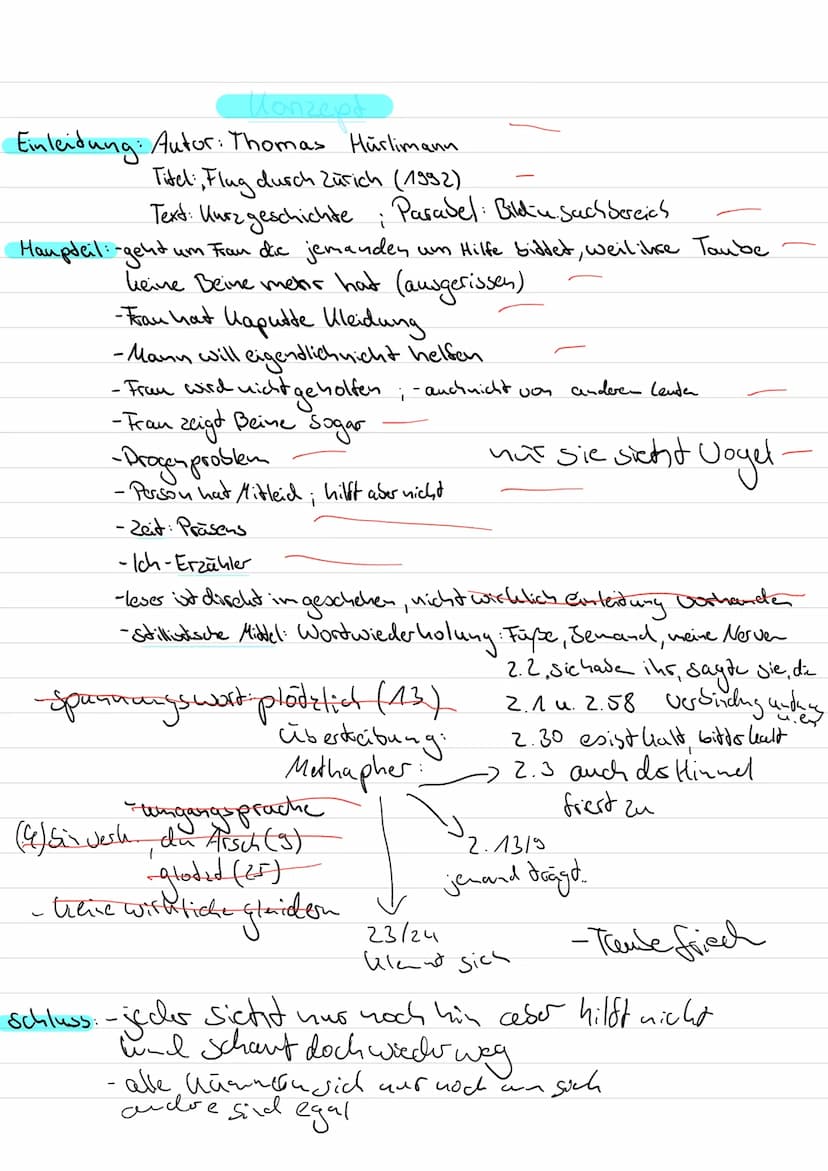 Konzept
Einleidung: Autor: Thomas Hürlimann
Titel: „Flug durch Zürich (1992)
Text: Kurzgeschichte ; Parabel: Bild u. Sachbereich
Haupdeil: -geht um Frau die jemanden um Hilfe biddet, weil ihre Taube
keine Beine mehr hat (ausgerissen)
-Frau hat Kaputte Kleidung
-Mann will eigendlich nicht helfen
- Frau wird nicht geholfen ; -auch nicht von anderen Leuten
-Frau zeigt Beine sogar
-Drogenproblem
nur sie sieht Vogel
- Person hat Mitleid ; hilft aber nicht
- Zeit: Präsens
-Ich-Erzähler
-leser ist direkt im geschehen, nicht wirklich Einleidung vorhanden
-stillistische Middel: Wortwiederholung: Füße, Jemand, meine Nerven
Z.2, sie habe ihr, sagte sie, die
-spannungswort: plödzlich (13)
Z.1 u. Z.58 Verbindung
Überteibung:
Z.30 es ist kalt, bitter kalt
Methapher:
Z.3 auch der Himmel
friert zu
-umgangsprache
(4) , du Arsch (9)
-glotzt (25)
Z.13/9
jemand trägt..
- keine wirkliche gleidern
23/24
sich
- Taube
Schluss: -jeder sieht nur noch hin aber hilft nicht
und schaut doch wieder weg
- alle kümmern sich nur noch um sich
andre sind egal